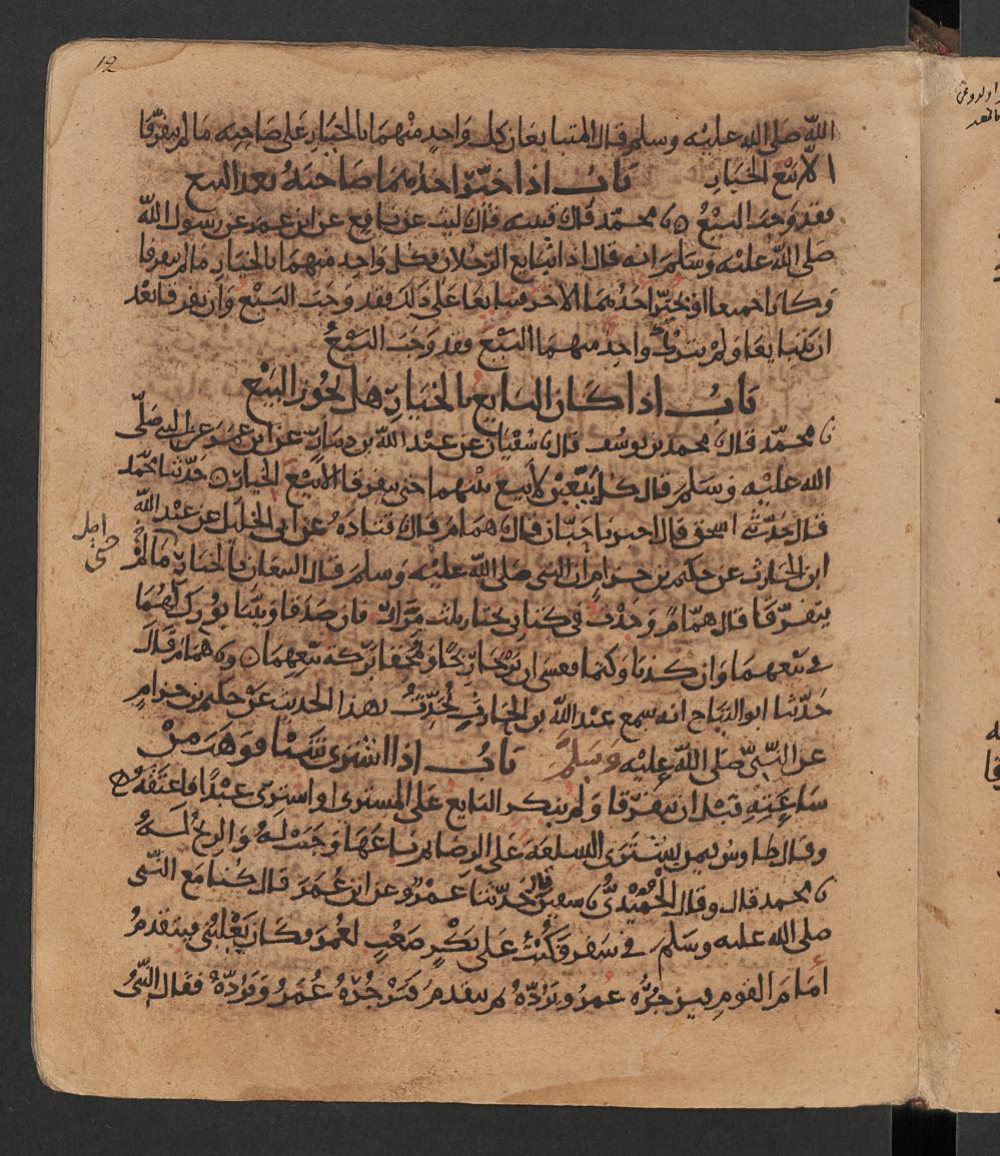 12
الله صلى الله عليه وسلم قال المتبايعان كل واحد منهما بالخيار على صاحبه ما لم يتفرقا
الا بيع الخيار باب اذا خير احدهما صاحبه بعد البيع
فقد وجب البيع ن محمد قال قتيبه قال ليث عن نافع عن ابن عمر عن رسول الله
صلى الله عليه وسلم انه قال اذا تبايع الرجلان فكل واحد منهما بالخيار ما لم يتفرقا
وكانا جميعا او يخير احدهما الاخر فتبايعا على ذلك فقد وجب البيع وان يفرقا بعد
ان تبايعا ولم يترك واحد منهما البيع فقد وجب البيع
باب اذا كان البايع بالخيار هل يجوز البيع
محمد قال محمد بن يوسف قال سفيان عن عبد الله بن دينار عن ابن عمر عن النبي صلى
الله عليه وسلم قال كل بيعين لا بيع بينهما حتى يتفرقا الا بيع الخيار حدثنا محمد
قال حدثني اسحق قال اخبرنا حبان قال همام قال قتاده عن ابي الخليل عن عبد الله
ابن الحارث عن حكيم بن حزام ان النبي صلى الله عليه وسلم قال البيعان بالخيار ما لم
يتفرقا قال همام وجدت في كتابي يختار ثلث مرات فان صدقا وبينا بورك لهما
في بيعهما وان كذبا وكتما فعسى ان يربحا ربحا ويمحقا بركة بيعهما ن همام قال
حدثنا ابو التياح انه سمع عبد الله بن الحارث يحدث بهذا الحديث عن حكيم بن حزام
عن النبي صلى الله عليه وسلم باب اذا اشترى شيئا فوهب من
ساعته قبل ان يتفرقا ولم ينكر البايع على المشتري او اشترى عبدا فاعتقه
وقال طاوس فيمن يشترى السلعة على الرضا ثم باعها وجبت له والربح له
محمد قال وقال الحميدي سفين قال حدثنا عمرو عن ابن عمر قال كنا مع النبي
صلى الله عليه وسلم في سفر فكنت على بكر صعب لعمر فكان يغلبني فيتقدم
امام القوم فيزجره عمر ويرده ثم يتقدم فيزجره عمر ويرده فقال النبي